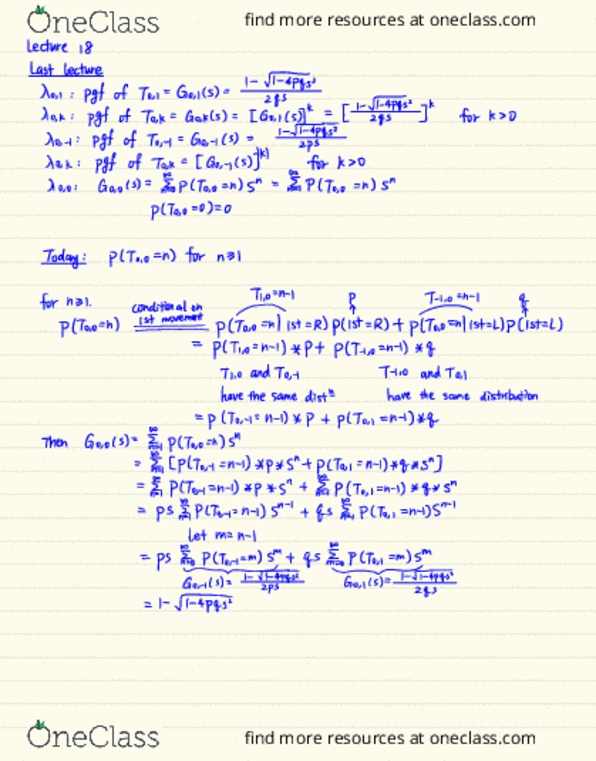 OneClass find more resources at oneclass.com
Lecture 18
Last lecture
λ0,1: pgf of T0,1 = G0,1(s) = (1-√(1-4pqs²))/(2qs)
λ0,k: pgf of T0,k = G0,k(s) = [G0,1(s)]^k = [(1-√(1-4pqs²))/(2qs)]^k for k>0
λ0,-1: pgf of T0,-1 = G0,-1(s) = (1-√(1-4pqs²))/(2ps)
λ0,k: pgf of T0,k = [G0,-1(s)]^|k| for k>0
λ0,0: G0,0(s) = Σ P(T0,0=n) s^n = Σ P(T0,0=n) s^n
P(T0,0=0)=0
Today: P(T0,0=n) for n≥1
T1,0=n-1 p T-1,0=n-1 q
for n≥1. conditional on
1st movement
P(T0,0=n) = P(T0,0=n|1st=R) P(1st=R) + P(T0,0=n|1st=L) P(1st=L)
= P(T1,0=n-1)*p + P(T-1,0=n-1)*q
T1,0 and T0,-1 T-1,0 and T0,1
have the same distⁿ have the same distribution
= P(T0,-1=n-1)*p + P(T0,1=n-1)*q
Then G0,0(s) = Σ_{n=1}^∞ P(T0,0=n) s^n
= Σ_{n=1}^∞ [P(T0,-1=n-1)*p*s^n + P(T0,1=n-1)*q*s^n]
= Σ_{n=1}^∞ P(T0,-1=n-1)*p*s^n + Σ_{n=1}^∞ P(T0,1=n-1)*q*s^n
= ps Σ_{n=1}^∞ P(T0,-1=n-1) s^{n-1} + qs Σ_{n=1}^∞ P(T0,1=n-1) s^{n-1}
let m=n-1
= ps Σ_{m=0}^∞ P(T0,-1=m) s^m + qs Σ_{m=0}^∞ P(T0,1=m) s^m
G0,-1(s) = (1-√(1-4pqs²))/(2ps) G0,1(s) = (1-√(1-4pqs²))/(2qs)
= 1-√(1-4pqs²)
OneClass find more resources at oneclass.com